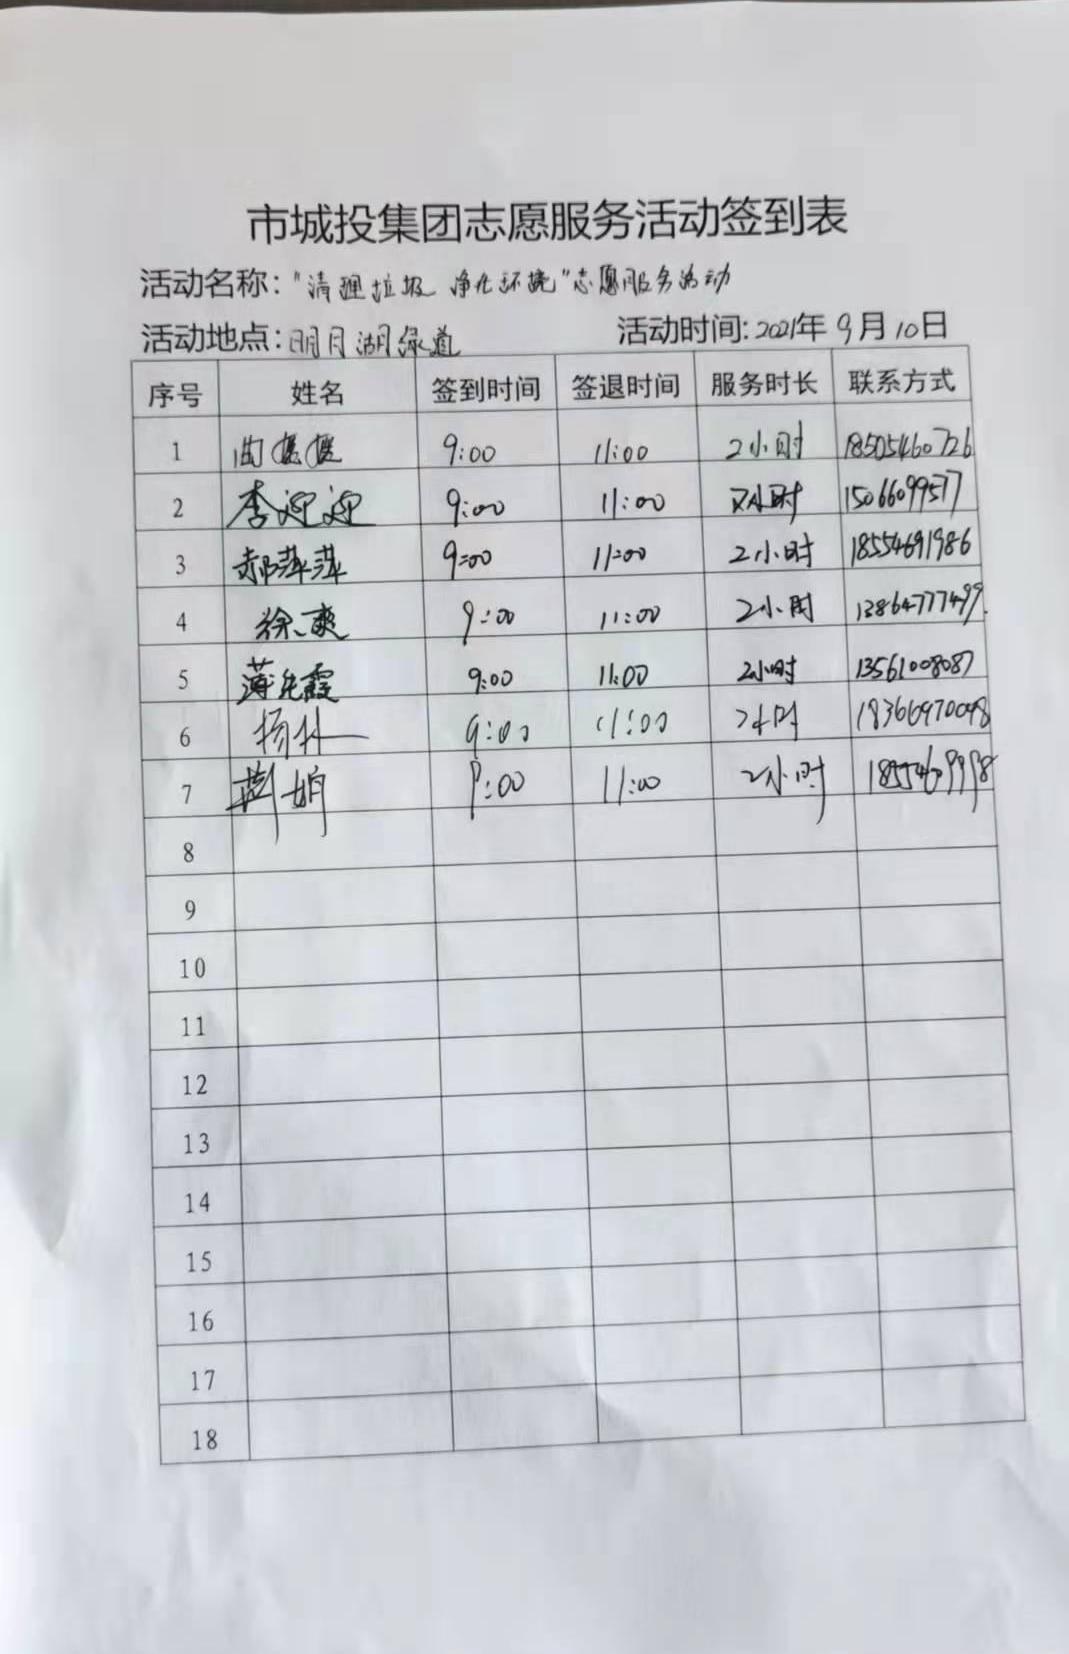 市城投集团志愿服务活动签到表
活动名称:"清理垃圾 净化环境"志愿服务活动
活动地点:明月湖绿道 活动时间:2021年9月10日
序号 姓名 签到时间 签退时间 服务时长 联系方式
1 曲媛媛 9:00 11:00 2小时 18505460726
2 李迎迎 9:00 11:00 2小时 15066099577
3 郝萍萍 9:00 11:00 2小时 18554691986
4 徐爽 9:00 11:00 2小时 13864777499
5 薄先霞 9:00 11:00 2小时 13561008087
6 杨林 9:00 11:00 2小时 18366970098
7 9:00 11:00 2小时
8
9
10
11
12
13
14
15
16
17
18